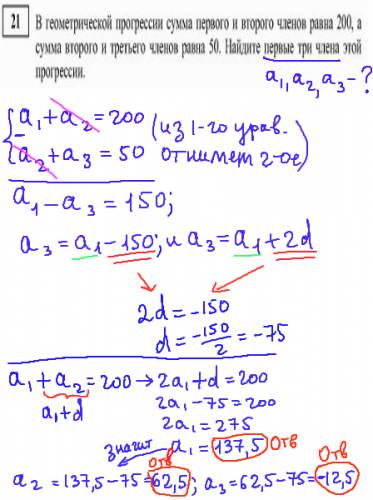 21 В геометрической прогрессии сумма первого и второго членов равна 200, а
сумма второго и третьего членов равна 50. Найдите первые три члена этой
прогрессии.
a₁, a₂, a₃ - ?
a₁ + a₂ = 200 (из 1-го урав.
a₂ + a₃ = 50 отнимет 2-ое)
a₁ - a₃ = 150;
a₃ = a₁ - 150; и a₃ = a₁ + 2d
2d = -150
d = -150/2 = -75
a₁ + a₂ = 200 → 2a₁ + d = 200
a₁ + d
2a₁ - 75 = 200
2a₁ = 275
значит a₁ = 137,5 Отв
Отв Отв
a₂ = 137,5 - 75 = 62,5; a₃ = 62,5 - 75 = -12,5